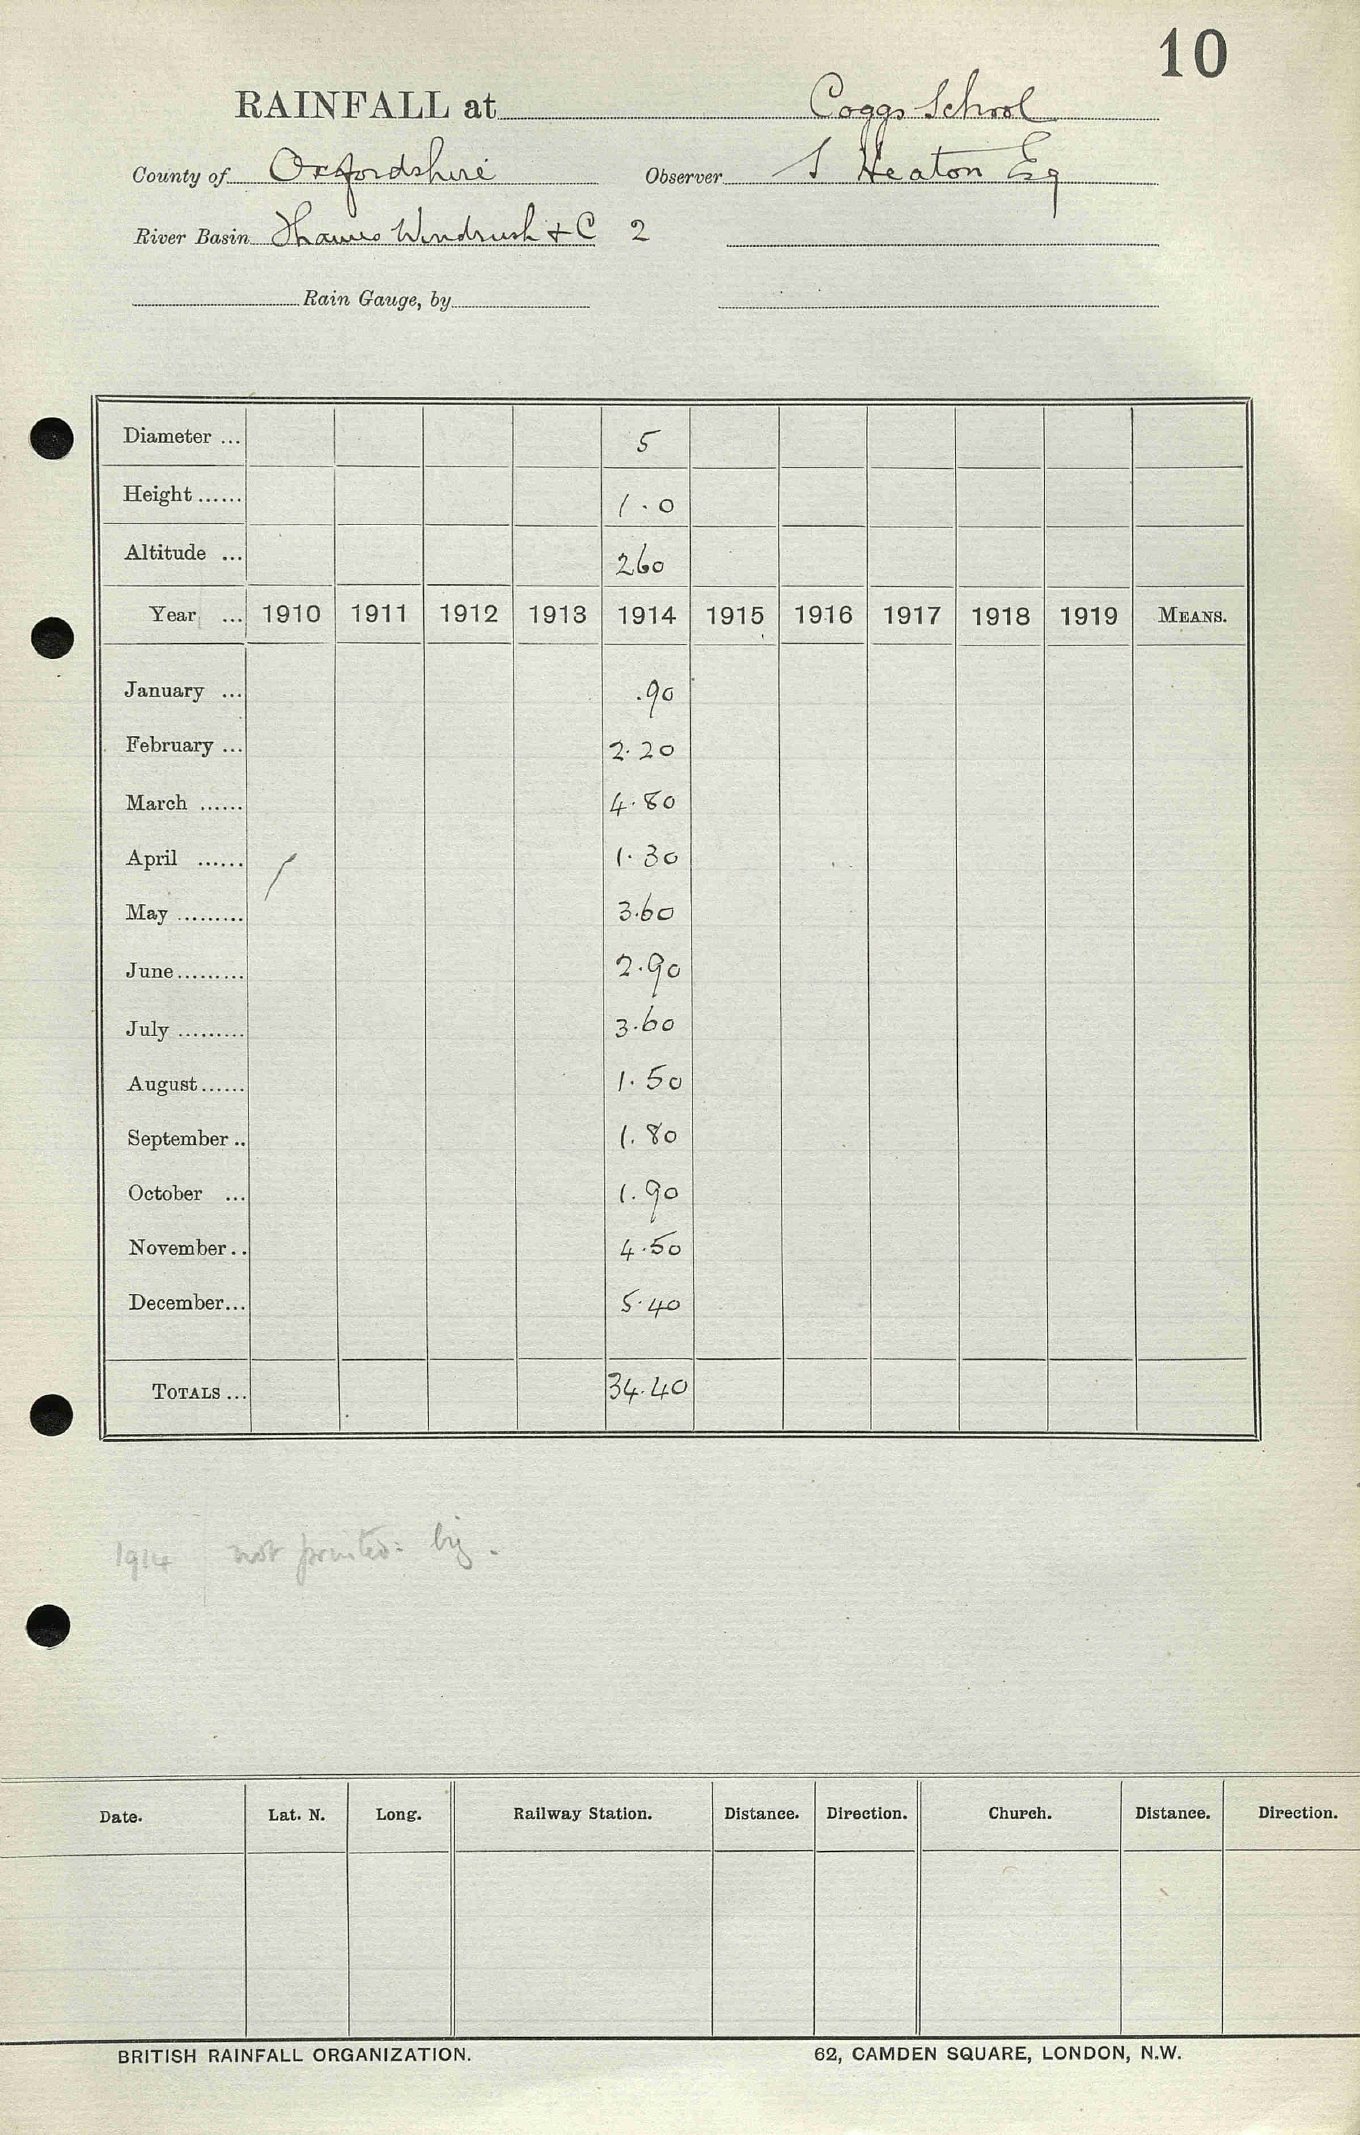 10
RAINFALL at Coggs School
County of Oxfordshire Observer S Heaton Esq
River Basin Thames Windrush & C 2
Rain Gauge, by
Diameter ... 5
Height ...... 1.0
Altitude ... 260
Year ... 1910 1911 1912 1913 1914 1915 1916 1917 1918 1919 MEANS.
January ... .90
February ... 2.20
March ...... 4.80
April ...... 1.30
May ......... 3.60
June ......... 2.90
July ......... 3.60
August ...... 1.50
September .. 1.80
October ... 1.90
November .. 4.50
December ... 5.40
TOTALS ... 34.40
1914 not printed: big.
Date. Lat. N. Long. Railway Station. Distance. Direction. Church. Distance. Direction.
BRITISH RAINFALL ORGANIZATION. 62, CAMDEN SQUARE, LONDON, N.W.